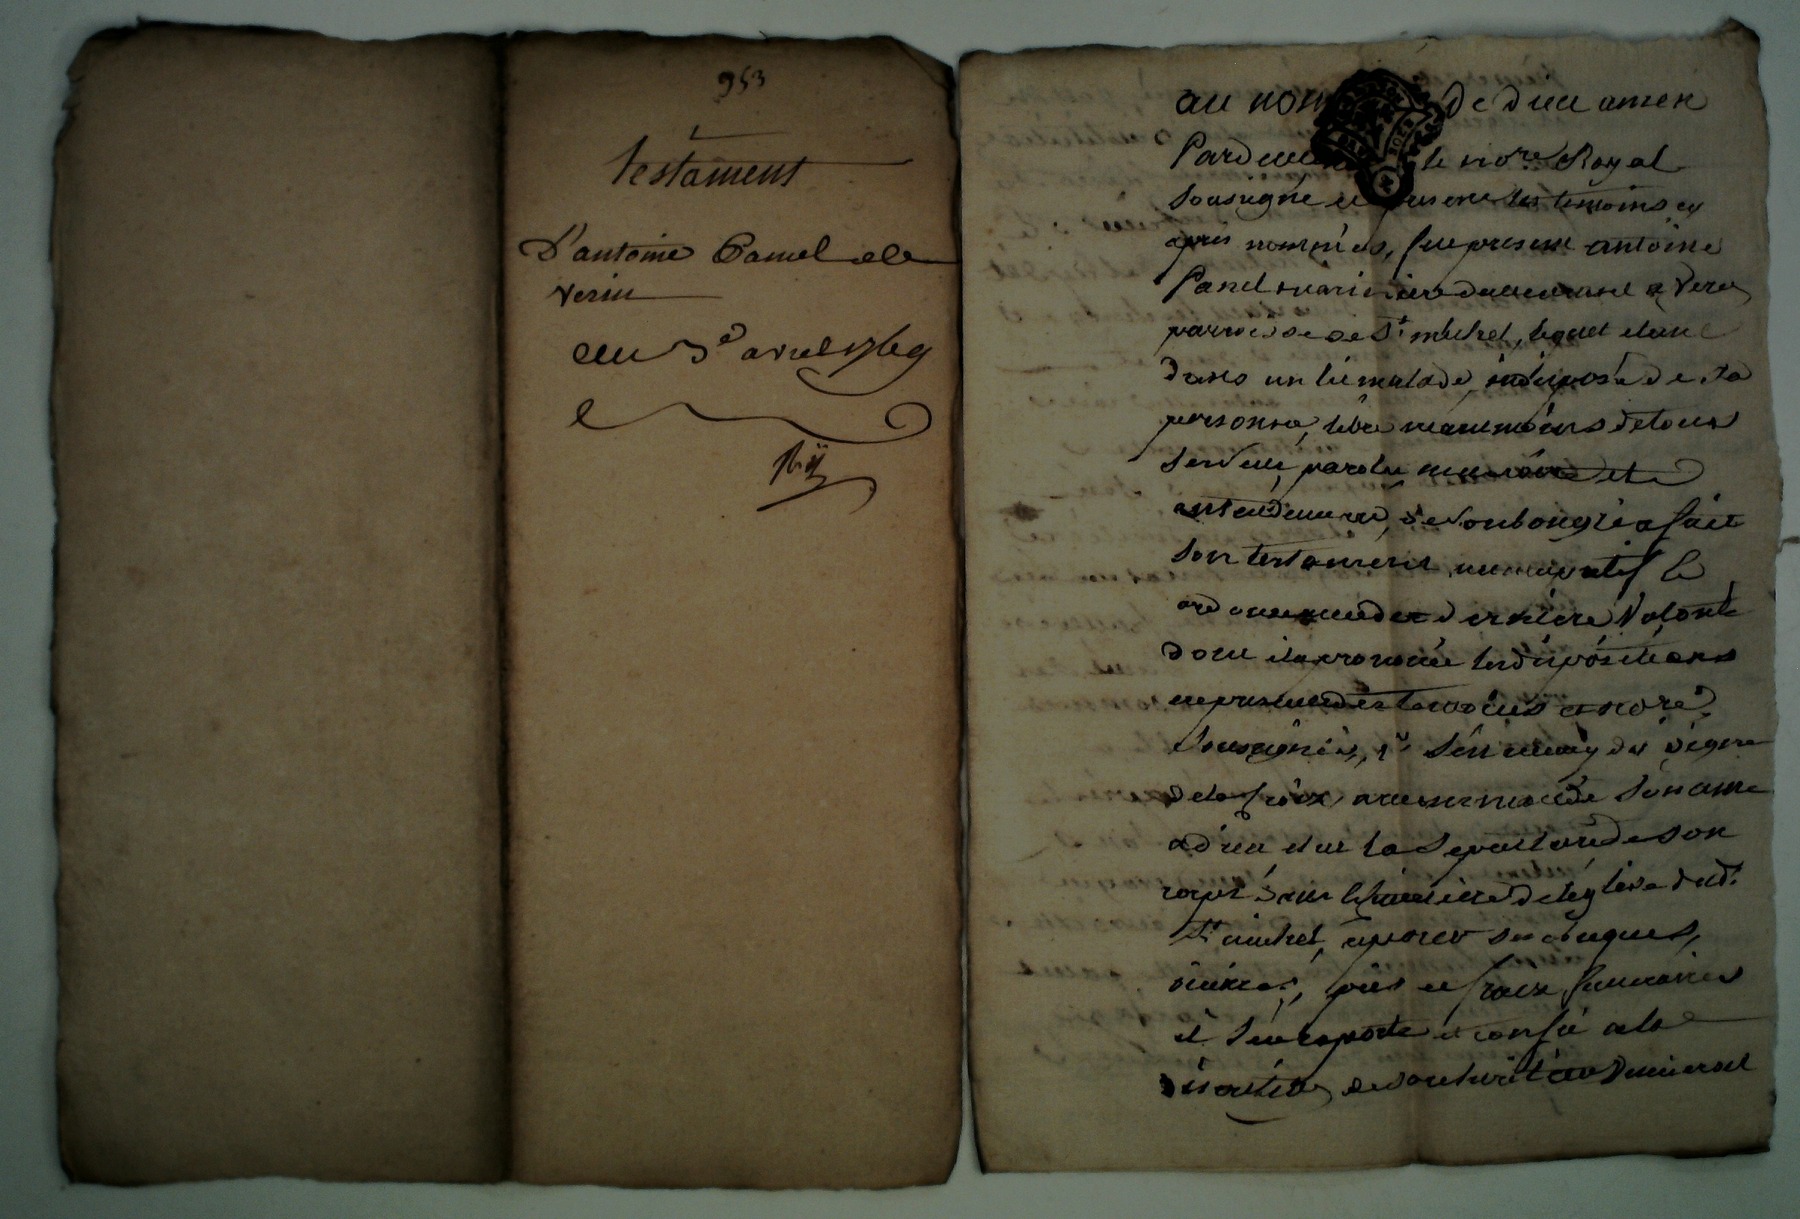 953
testament
D'antoine Panel de
verin
du 3e avril 1769
au nom de dieu amen
Pardevant le nore Royal
soussigné et presens les temoins cy
apres nommés, fut present antoine
Panel marinier demeurant a Verin
parroisse de St michel, lequel etant
dans un lit malade, indisposé de sa
personne, libre neanmoins de tous
ses sens, parolle memoire et
entendement, de son bon gré a fait
son testament nuncupatif et
ordonnance de derniere Volonté
dont il a prononcé les dispositions
en presence des temoins et nore
soussignés, s'etant muny du signe
de la croix, a recommandé son ame
a dieu elut la Sepulture de son
corps dans le cimetiere de leglise dud.
St michel, a pour ses obseques,
prieres, et fraix funeraires
il s'en raporte et confie a la
discretion de son heritier universel